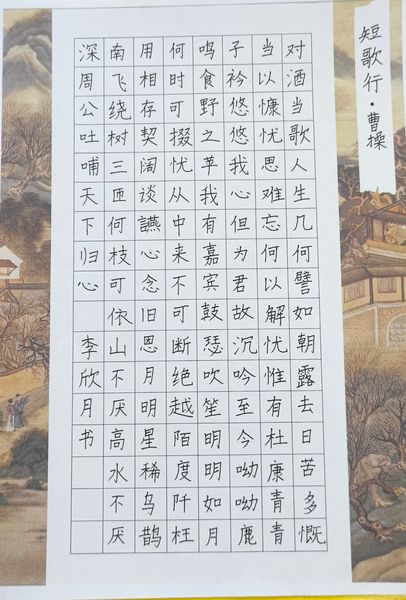 短歌行·曹操
对酒当歌人生几何譬如朝露去日苦多慨
当以慷忧思难忘何以解忧惟有杜康青青
子衿悠悠我心但为君故沉吟至今呦呦鹿
鸣食野之苹我有嘉宾鼓瑟吹笙明明如月
何时可掇忧从中来不可断绝越陌度阡枉
用相存契阔谈讌心念旧恩月明星稀乌鹊
南飞绕树三匝何枝可依山不厌高水不厌
深周公吐哺天下归心 李欣月书